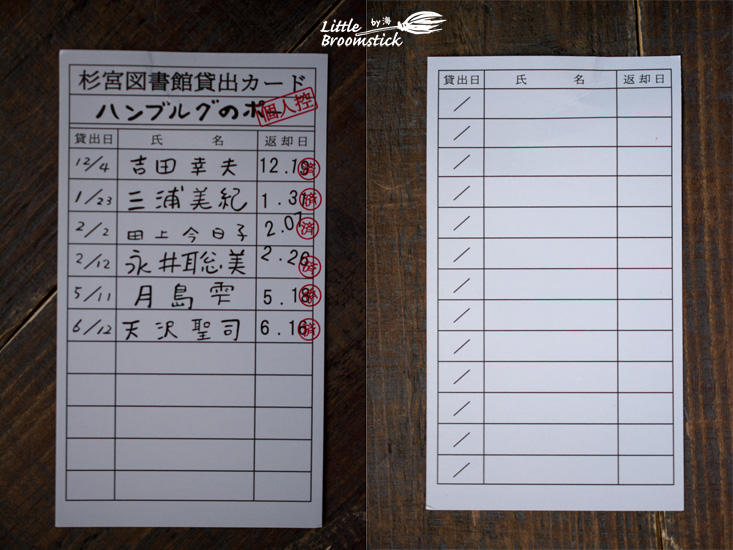 Little by 海
Broomstick
杉宮図書館貸出カード
ハンブルグのポー
個人控
貸出日 氏 名 返却日
12/4 吉田幸夫 12.19 済
1/23 三浦美紀 1.31 済
2/2 田上今日子 2.07 済
2/12 永井聡美 2.26 済
5/11 月島雫 5.18 済
6/12 天沢聖司 6.16 済
貸出日 氏 名 返却日
/
/
/
/
/
/
/
/
/
/
/
/
/